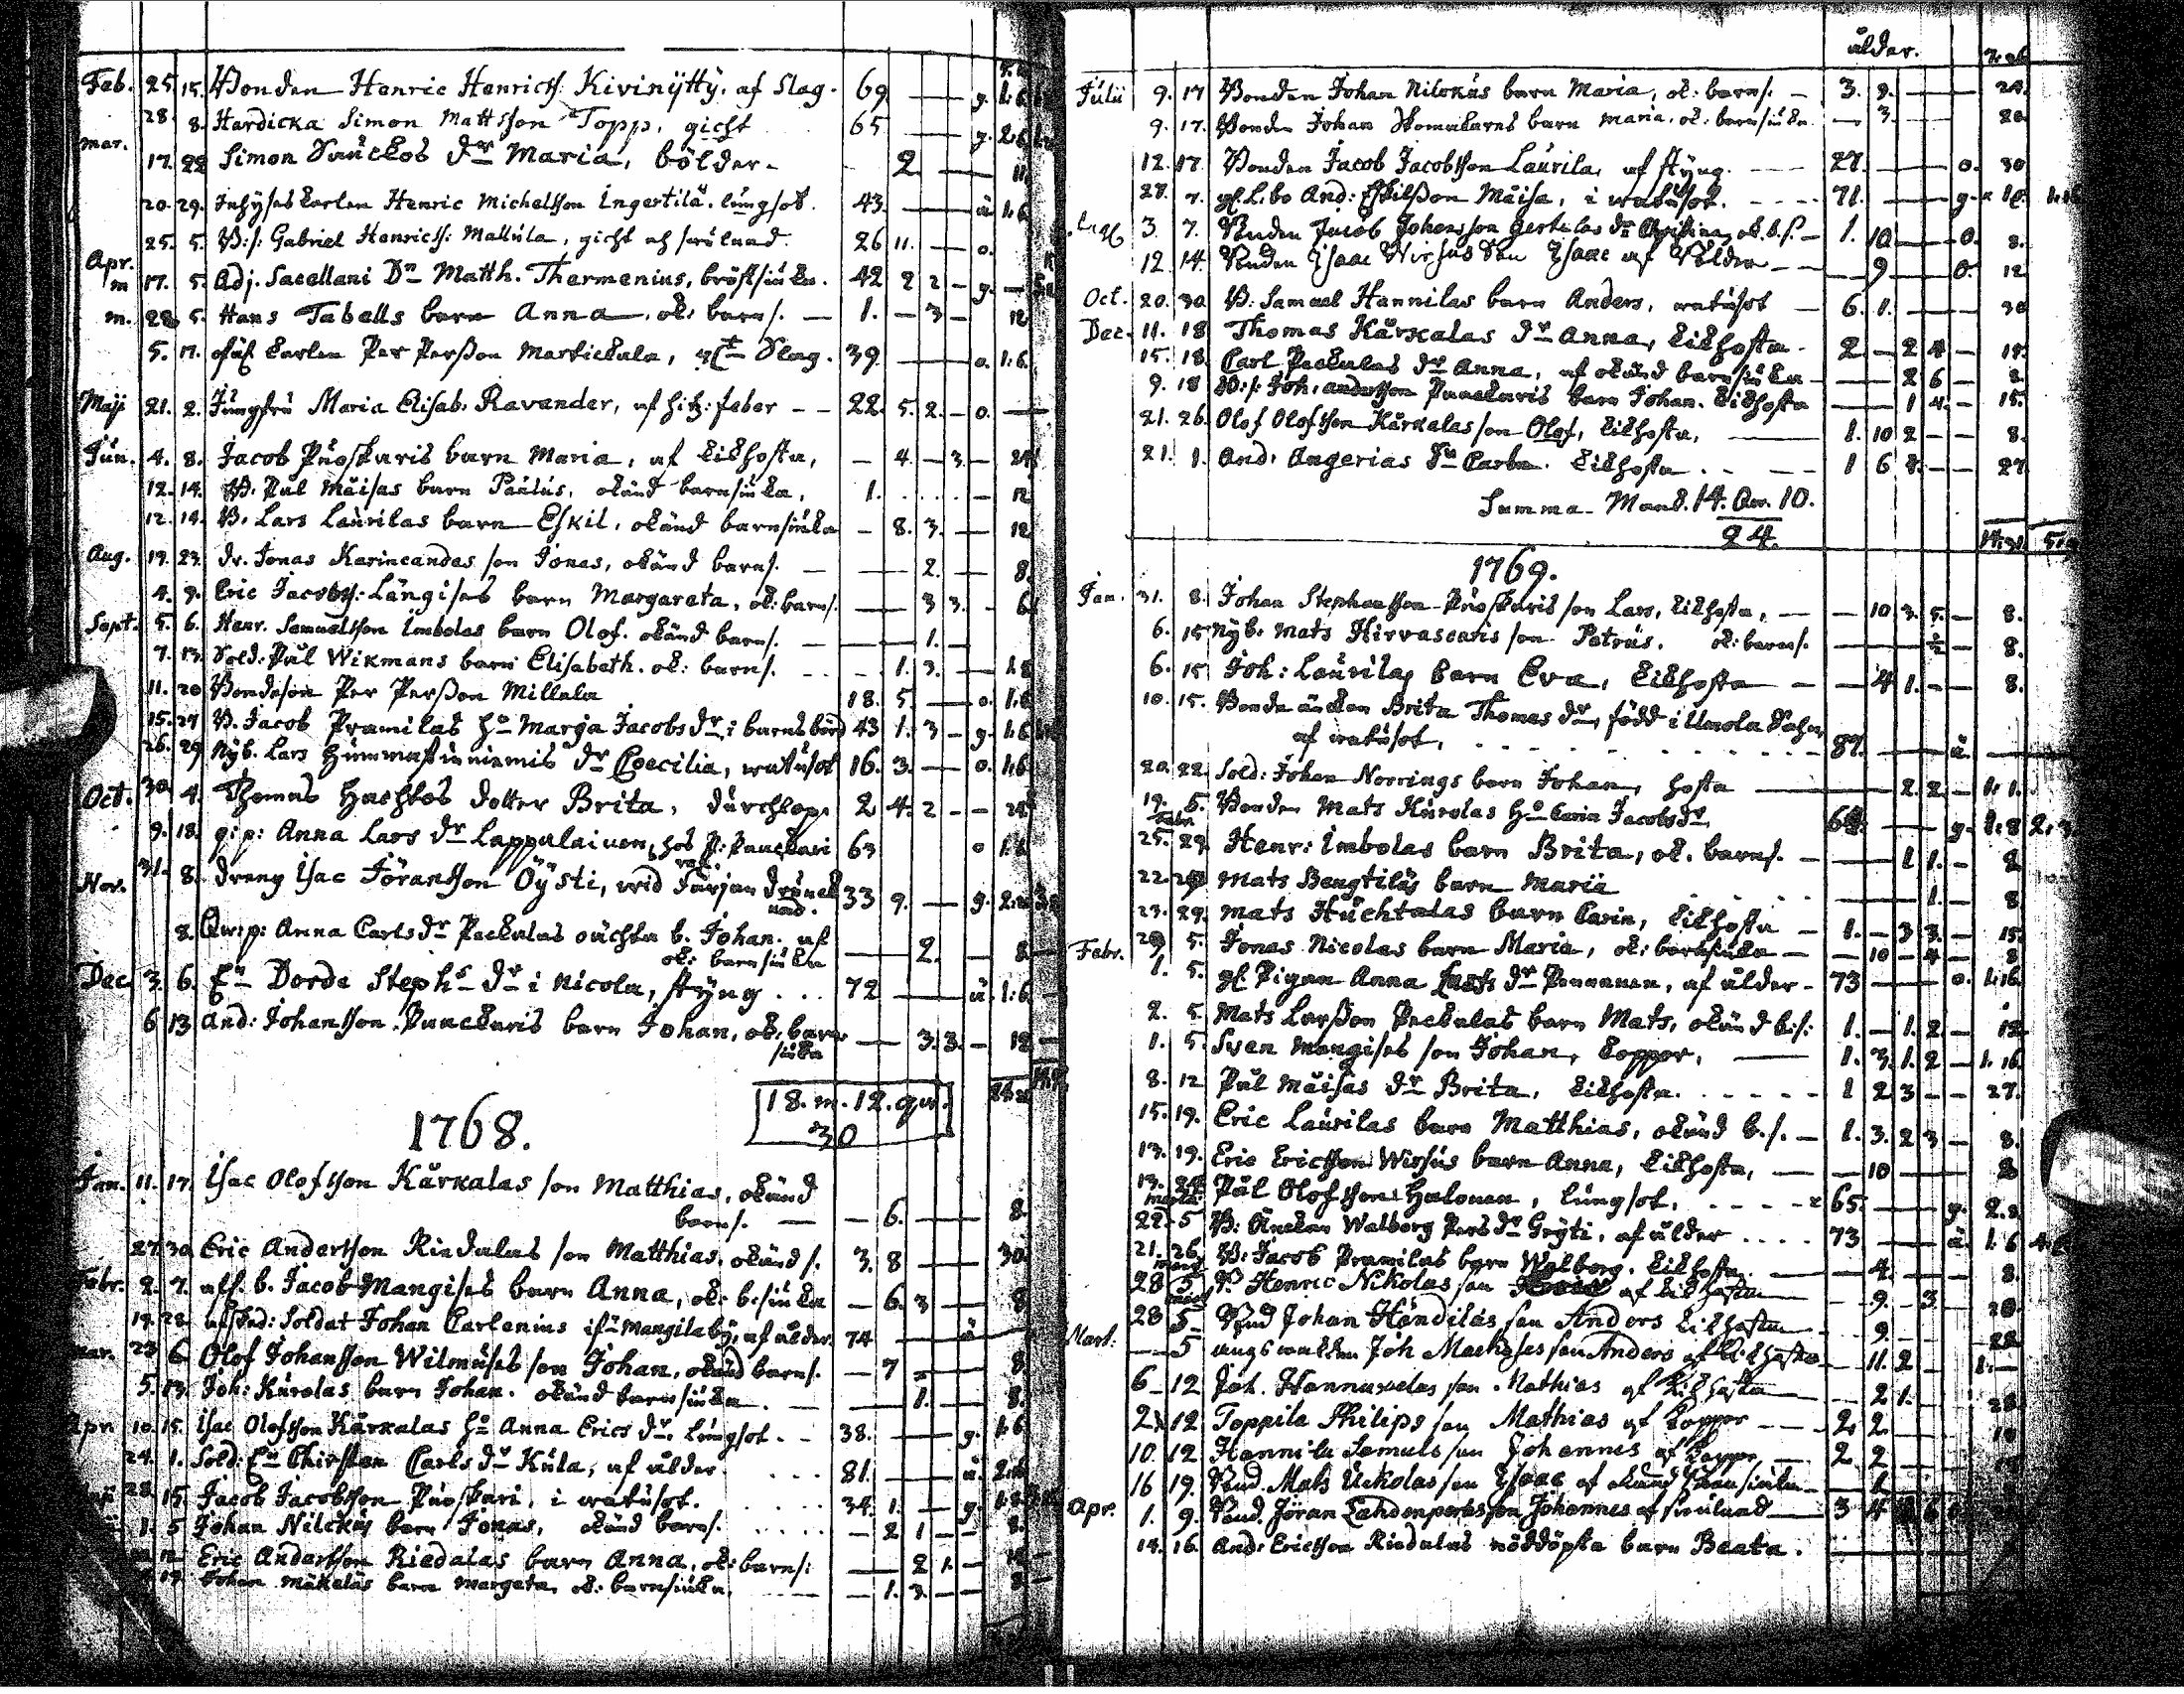 Feb. 25. 15. Bonden Henric Henricss. Kivinÿttÿ, af Slag. 69 — g. 1:6
28. 8. Hardicka Simon Mattsson Topp, gicht 65 — g. 2:6
Mar. 17. 22 Simon Sauckos dr Maria, bölder. 2 — 11.
20. 29. Inhyses karlen Henric Michelsson Ingertilä, lungsot. 43. — ä 1:6
25. 5. B:s: Gabriel Henricss: Mallula, gicht och swulnad. 26 11. — o.
Apr. m 17. 5. Adj. Sacellani Dn Matth. Thermenius, bröstsiuka. 42 2 2 — g. —
m. 28 5. Hans Taballs barn Anna, ok: barns. — 1. — 3 — 12
5. 17. karlen Per Persson Martickala, Slag. 39. — o. 1:6.
Maji 21. 2. Jungfru Maria Elisab. Ravander, af hitz: feber — 22. 5. 2. — o. —
Jun. 4. 8. Jacob Puoskaris barn Maria, af kikhosta, — 4. — 3. — 24
12. 14. B. Pål Mäisas barn Paulus, okänd barnsiuka, 1. — 12
12. 14. B. Lars Laurilas barn Eskil, okänd barnsiuka — 8. 3. — 12
Aug. 19. 23. dr. Jonas Karincandas son Jonas, okänd barns. — 2. — 8.
4. 9. Eric Jacobss: Längises barn Margareta, ok: barns. — 3 3. — 6
Sept. 5. 6. Henr. Samuelsson Imbolas barn Olof. okänd barns. — 1. —
7. 13. Sold: Pål Wikmans barn Elisabeth. ok: barns. 1. 3. — 18
11. 20 Bondeson Per Persson Millala 18. 5 — o. 1:6
15. 27 B. Jacob Pramilas ho Marja Jacobs dr, i barnsbörd 43 1. 3 — g. 1:6
26. 29 Nyb. Lars Hummastinniemis dr Coecilia, watusot 16. 3. — o. 1:6
Oct. 30. 4. Thomas Huchtos dotter Brita, durchlop. 2 4. 2 — 24
9. 18. q: p: Anna Lars dr Lappalainen, hos P: Panckari 63 o 1:6
Nov. 31. 8. dreng Isac Göransson Öÿsti, wid Färjan drunck 33 9. — g. 2:
nad.
8. Qw: p: Anna Carls dr Packalas oächta b. Johan. af — 2. — 8
ok: barnsiuka
Dec. 3. 6. En Dorde Stephs dr i Nicola, styng 72 — ä 1:6
6 13 And: Johansson Panckaris barn Johan, ok: barn — 3. 3. — 12
siuka
18. m. 12. qw.
30
1768.
Jan. 11. 17. Isac Olofsson Kårkalas son Matthias, okänd
barns. — 6. — 8.
27. 30. Eric Andersson Riedalas son Matthias, okänd s. 3. 8 — 30.
Febr. 2. 7. afs. b. Jacob Mangises barn Anna, ok: b. siuka — 6. 3 — 8
19. 28. afsked: Soldat Johan Carlenius ifrån Mangilaby, af ålder. 74 — ä
Mar. 23 6. Olof Johansson Wilmuses son Johan, okänd barns. — 7 — 8
5. 13. Joh: Kurolas barn Johan. okänd barnsiuka. — 1. — 8.
Apr. 10. 15. Isac Olofsson Kårkalas ho Anna Erics dr, lungsot. 38. — g. 1:6
24. 1. Sold: En Chirstin Carls dr Kula, af ålder. 81. — ä 2:6
28. 15. Jacob Jacobsson Puoskari, i watusot. 34. 1. — g.
1. 5 Johan Nilckus barn Jonas, okänd barns. — 2 1 — 8.
12. Eric Andersson Riedalas barn Anna, ok: barns: — 2 1. —
17. Johan Mäkeläs barn Margeta, ok: barnsiuka. — 1. 3. — 8
ålder.
Julii 9. 17 Bonden Johan Nilckus barn Maria, ok: barns. — 3. 9. — 24.
9. 17. Bonden Johan Skomakares barn Maria. ok: barnsiuka — 3. — 20.
12. 17. Bonden Jacob Jacobsson Laurila, af styng. 27. — o. 30
28. 7. gl. L. bo And: Eskilsson Mäisa, i watusot. 71. — g.
Aug. 3. 7. Bonden Jacob Johansson Gertulas dr Christina, ok. b. s. — 1. 10 — o. 8.
12. 14. Bonden Isaac Wirsus Son Isaac af Bölder — 9 — o. 12
Oct. 20. 30 B. Samuel Hannilas barn Anders, watusot — 6. 1. — 30
Dec. 11. 18 Thomas Kårkalas dr Anna, kikhosta. 2 — 2 4 — 18.
15. 18. Carl Packalas dr Anna, af okänd barnsiuka — 2 6 — 8.
9. 18 B: s: Joh: Andersson Panckaris barn Johan. kikhosta — 1 4. — 15.
21. 26. Olof Olofsson Kårkalas son Olof, kikhosta. — 1. 10 2 — 8.
21. 1. And: Angerias dr Carin. kikhosta — 1 6 8. — 27
Summa Mank. 14. Qw. 10.
24.
1769.
Jan. 31. 8. Johan Stephansson Puoskaris son Lars, kikhosta, — 10 3. 5. — 8.
6. 15 Nyb. Mats Hirvascaris son Petrus. ok: barns. — 8.
6. 15 Joh: Laurilas barn Eva, kikhosta — 4 1. — 8.
10. 15. Bonde änckan Brita Thomas dr, född i Umola Sahn
af watusot. 87. — ä. —
20. 22. Sold: Johan Norrings barn Johan, hosta — 2 2 — 1: 1.
19. 5. Febr. Bonden Mats Kurolas ho Carin Jacobs dr — g. 1:8 2:3
25. 29. Henr: Imbolas barn Brita, ok. barns. — 1 1. — 8
22. 29 Mats Bengtiläs barn Maria — 1. — 8
23. 29. Mats Huchtalas barn Carin, kikhosta — 1. — 3 3. — 15.
Febr. 29 5. Jonas Nicolas barn Maria, ok: barnsiuka — 10 — 4 — 8
1. 5. gl. Pigan Anna Lars dr Pennanen, af ålder. 73 — o. 1:16
2. 5. Mats Larsson Packalas barn Mats, okänd b: s: 1. — 1. 2 — 12
1. 5 Sven Mangises son Johan, koppor. — 1. 3. 1. 2 — 1. 16.
8. 12 Pål Mäisas dr Brita, kikhosta. 1 2 3 — 27.
15. 19. Eric Laurilas barn Matthias, okänd b. s. — 1. 3. 2 3 — 8.
13. 19. Eric Ericsson Wirsus barn Anna, kikhosta, — 10 — 8
13. 24 Pål Olofsson Halonen, lungsot. 65. — g. 2:2
22. 5 B: Änckan Walborg Pers dr Grÿti, af ålder 73 — ä. 1:6
21. 26. B: Jacob Pramilas barn Walborg. kikhosta. — 4. — 8.
28 5. B. Henric Nikolas son af kikhosta — 9. — 3 — 20.
Mart. 28 5. Bond Johan Händiläs son Anders kikhosta — 9. — 28
— 5 Joh Mackeses son Anders af kikhosta — 11. 2 — 1: —
6 — 12 Joh. Hannukelas son Mathias af kikhosta — 2 1. — 28
2 12 Toppila Philips son Mathias af koppor — 2 2.
10. 12 Hannila Samuls son Johannes af koppor 2 2
16 19. Bond. Mats Uckolas son Isaac af okänd barnsiuka — 1
Apr. 1. 9. Bond. Jöran Lahdenperas son Johannes af swulnad — 3 4
14. 16. And: Ericsson Riedalas nöddöpta barn Beata.